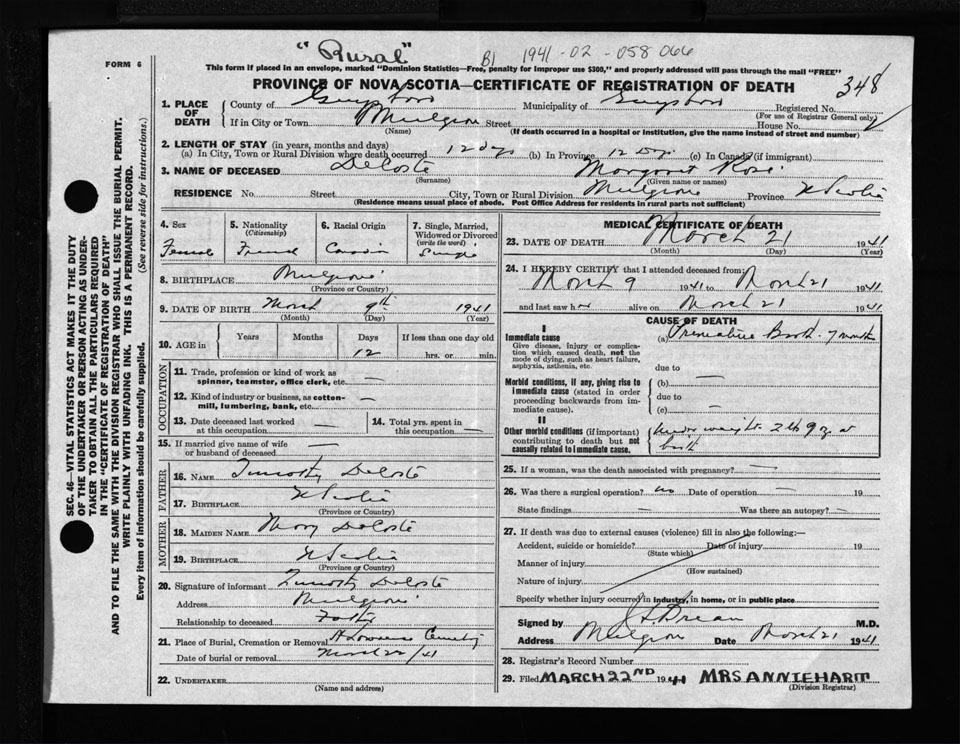 "Rural"
B) 1941-02-058066
FORM 6
This form if placed in an envelope, marked "Dominion Statistics—Free, penalty for improper use $300," and properly addressed will pass through the mail "FREE"
PROVINCE OF NOVA SCOTIA—CERTIFICATE OF REGISTRATION OF DEATH
348
1. PLACE OF DEATH
County of Guysboro Municipality of Guysboro Registered No.
(For use of Registrar General only)
If in City or Town Mulgrave Street House No.
(Name) (If death occurred in a hospital or institution, give the name instead of street and number)
2. LENGTH OF STAY (in years, months and days)
(a) In City, Town or Rural Division where death occurred 12 days (b) In Province 12 Days (c) In Canada (if immigrant)
3. NAME OF DECEASED DeCoste Margaret Rose
(Surname) (Given name or names)
RESIDENCE No. Street City, Town or Rural Division Mulgrave Province N Scotia
(Residence means usual place of abode. Post Office Address for residents in rural parts not sufficient)
4. Sex
Female
5. Nationality
(Citizenship)
French
6. Racial Origin
7. Single, Married, Widowed or Divorced
(write the word)
Single
8. BIRTHPLACE Mulgrave
(Province or Country)
9. DATE OF BIRTH March 9th 1941
(Month) (Day) (Year)
10. AGE in
Years Months Days If less than one day old
12 hrs. or min.
OCCUPATION
11. Trade, profession or kind of work as spinner, teamster, office clerk, etc. —
12. Kind of industry or business, as cotton-mill, lumbering, bank, etc. —
13. Date deceased last worked at this occupation —
14. Total yrs. spent in this occupation —
15. If married give name of wife or husband of deceased —
FATHER
16. NAME Timothy DeCoste
17. BIRTHPLACE N Scotia
(Province or Country)
MOTHER
18. MAIDEN NAME Mary DeCoste
19. BIRTHPLACE N Scotia
(Province or Country)
20. Signature of informant Timothy DeCoste
Address Mulgrave
Relationship to deceased Father
21. Place of Burial, Cremation or Removal St Lawrence Cemetery
Date of burial or removal March 22/41
22. UNDERTAKER
(Name and address)
MEDICAL CERTIFICATE OF DEATH
23. DATE OF DEATH March 21 1941
(Month) (Day) (Year)
24. I HEREBY CERTIFY that I attended deceased from:
March 9 1941 to March 21 1941
and last saw her alive on March 21 1941
CAUSE OF DEATH
I
Immediate cause
Give disease, injury or complication which caused death, not the mode of dying, such as heart failure, asphyxia, asthenia, etc.
(a) Premature Birth 7 months
due to
Morbid conditions, if any, giving rise to immediate cause (stated in order proceeding backwards from immediate cause).
(b) —
due to
(c) —
II
Other morbid conditions (if important) contributing to death but not causally related to immediate cause.
Under weight 2 lb 9 oz at birth
25. If a woman, was the death associated with pregnancy? —
26. Was there a surgical operation? no Date of operation — 19
State findings — Was there an autopsy? —
27. If death was due to external causes (violence) fill in also the following:—
Accident, suicide or homicide? Date of injury 19
(State which)
Manner of injury
(How sustained)
Nature of injury
Specify whether injury occurred in industry, in home, or in public place
Signed by M.D.
Address Mulgrave Date March 21 1941
28. Registrar's Record Number
29. Filed MARCH 22ND 1941 MRS ANNIE HART
(Division Registrar)
SEC. 46—VITAL STATISTICS ACT MAKES IT THE DUTY OF THE UNDERTAKER OR PERSON ACTING AS UNDERTAKER TO OBTAIN ALL THE PARTICULARS REQUIRED IN THE "CERTIFICATE OF REGISTRATION OF DEATH"
AND TO FILE THE SAME WITH THE DIVISION REGISTRAR WHO SHALL ISSUE THE BURIAL PERMIT.
WRITE PLAINLY WITH UNFADING INK. THIS IS A PERMANENT RECORD.
Every item of information should be carefully supplied. (See reverse side for instructions.)